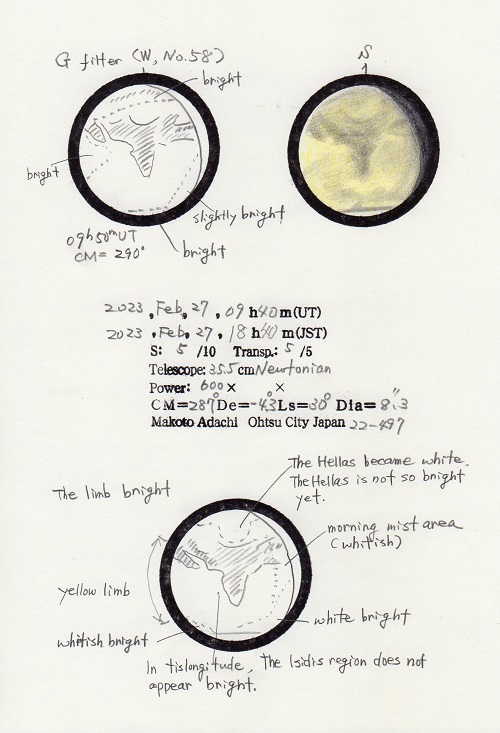 G filter (W, No.58)
bright
S
bright
slightly bright
09h50mUT
CM= 290°
bright
2023, Feb, 27, 09 h40m(UT)
2023, Feb, 27, 18 h40 m(JST)
S: 5 /10 Transp.: 5 /5
Telescope: 35.5cm Newtonian
Power: 600× ×
CM=287°De=-4.3°Ls=30° Dia= 8".3
Makoto Adachi Ohtsu City Japan 22-497
The Hellas became white.
The Hellas is not so bright
yet.
The limb bright
morning mist area
(whitish)
yellow limb
white bright
whitish bright
In tislongitude, The Isidis region does not
appear bright.